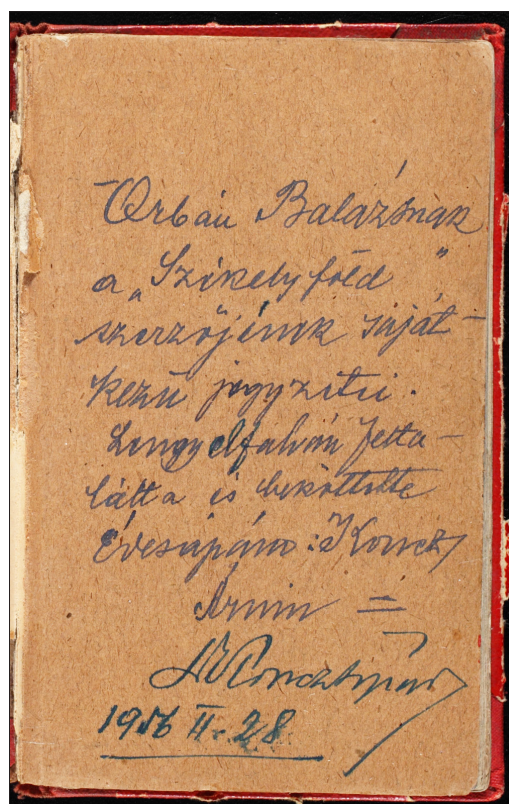 Orbán Balázsnak
a „Székelyföld”
szerzőjének saját-
kezű jegyzetei.
Lengyelfalván fetta-
látta és beköttette
Édesapám: Koncz
Ármin =
1956 II. 28